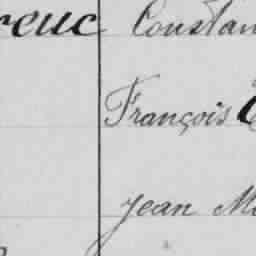 reuc Constan
François
Jean Ma